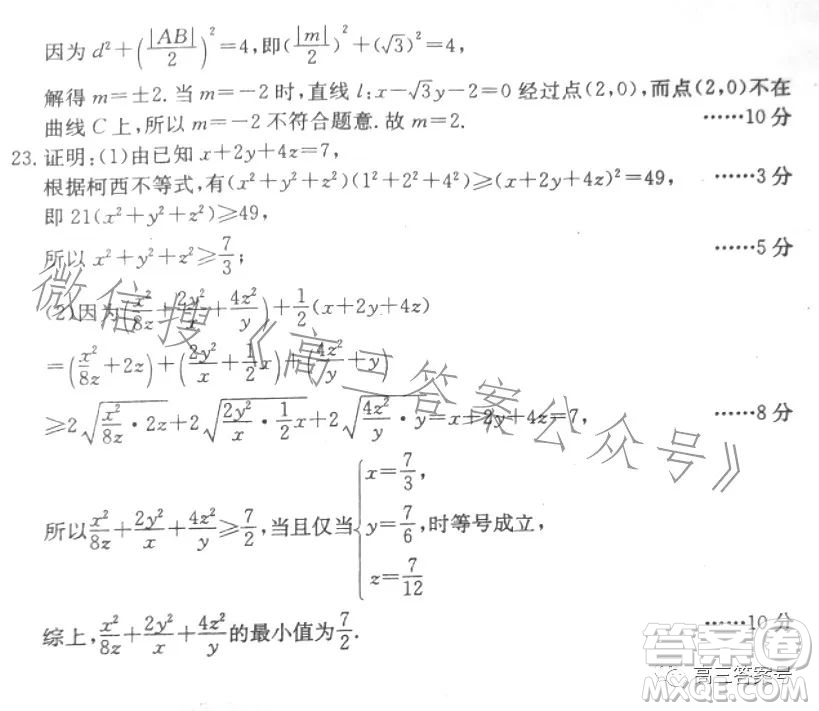 因为 d²+(|AB|/2)²=4,即(|m|/2)²+(√3)²=4,
解得 m=±2. 当 m=-2 时,直线 l:x-√3y-2=0 经过点(2,0),而点(2,0)不在
曲线 C 上,所以 m=-2 不符合题意. 故 m=2. ……10 分
23. 证明:(1)由已知 x+2y+4z=7,
根据柯西不等式,有(x²+y²+z²)(1²+2²+4²)≥(x+2y+4z)²=49, ……3 分
即 21(x²+y²+z²)≥49,
所以 x²+y²+z²≥7/3; ……5 分
(2)因为(x²/8z+2y²/x+4z²/y)+1/2(x+2y+4z)
=(x²/8z+2z)+(2y²/x+1/2x)+(4z²/y+y)
≥2√(x²/8z·2z)+2√(2y²/x·1/2x)+2√(4z²/y·y)=x+2y+4z=7, ……8 分
所以x²/8z+2y²/x+4z²/y≥7/2,当且仅当{x=7/3, y=7/6, z=7/12 时等号成立,
综上,x²/8z+2y²/x+4z²/y的最小值为7/2. ……10 分
微信搜《高三答案公众号》
答案卷
高三答案号
MXQE.COM